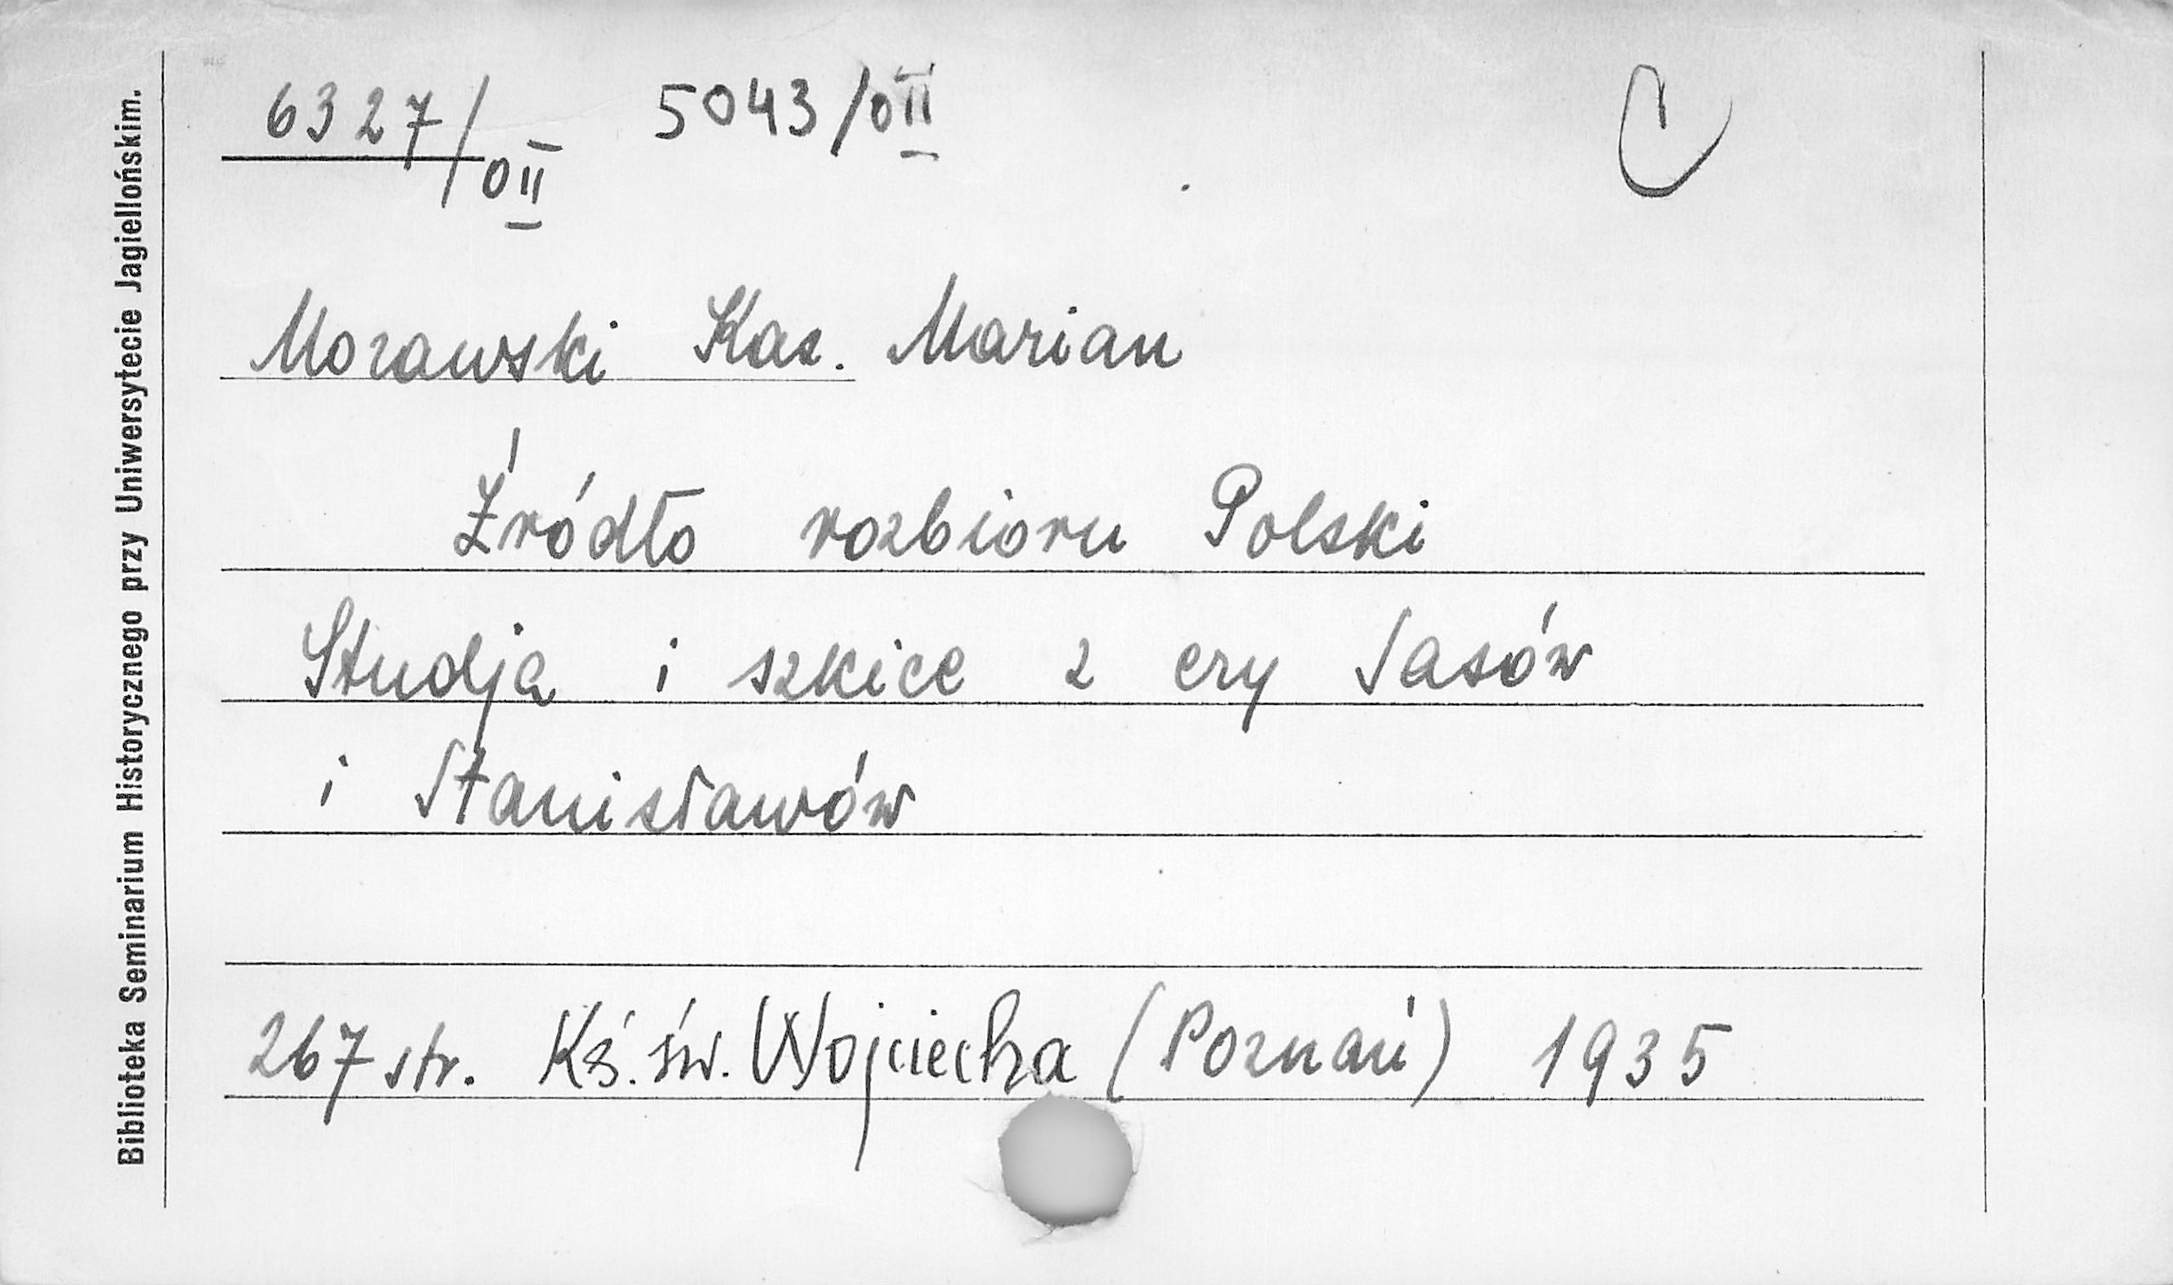 6327/OII 5043/OII
Morawski Kaz. Marian
Źródło rozbioru Polski
Studja i szkice z ery Sasów
i Stanisławów
267 str. Kś. św. Wojciecha (Poznań) 1935
Biblioteka Seminarium Historycznego przy Uniwersytecie Jagiellońskim.